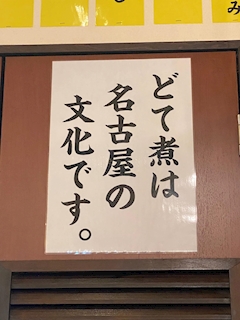 どて煮は
名古屋の
文化です。
み